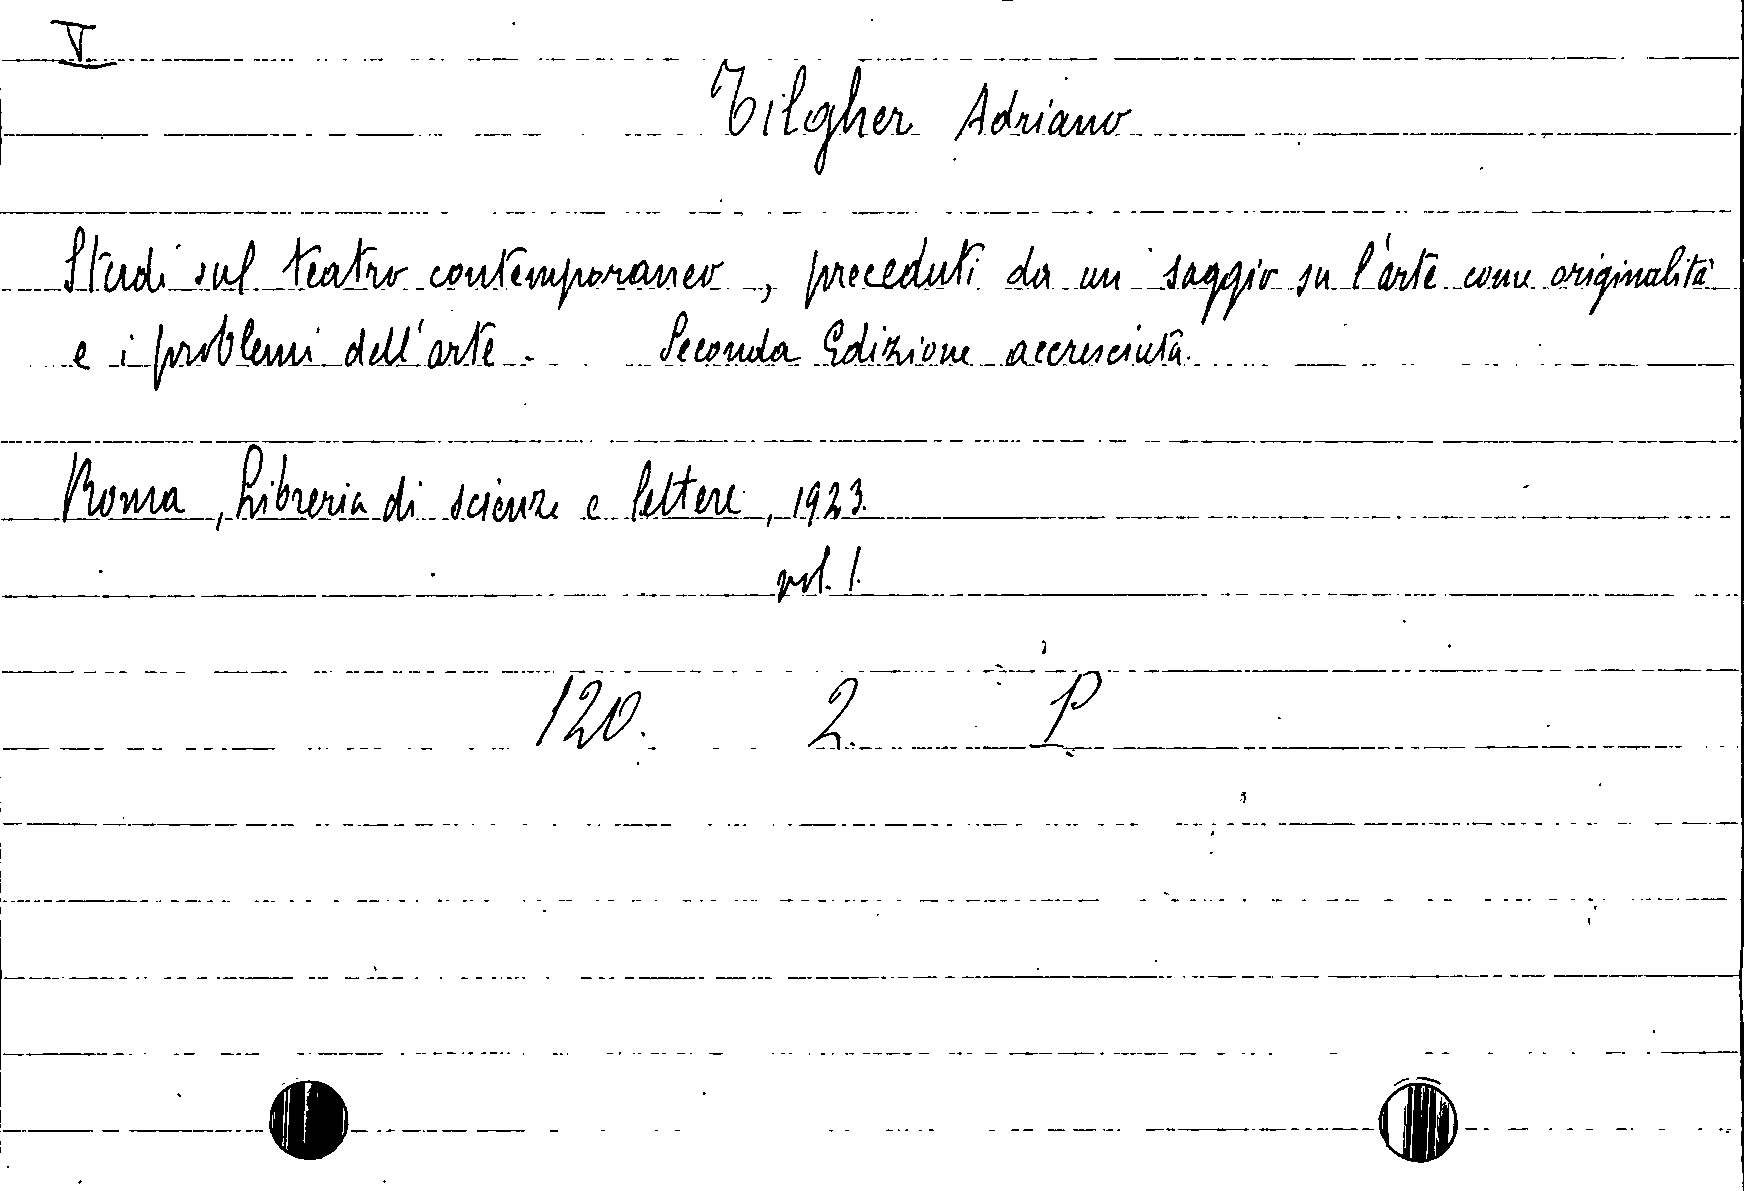 V
Tilgher Adriano
Studi sul teatro contemporaneo, preceduti da un saggio su l'arte come originalità
e i problemi dell'arte. Seconda Edizione accresciuta.
Roma, Libreria di scienze e lettere, 1923.
vol. 1.
120. 2. P